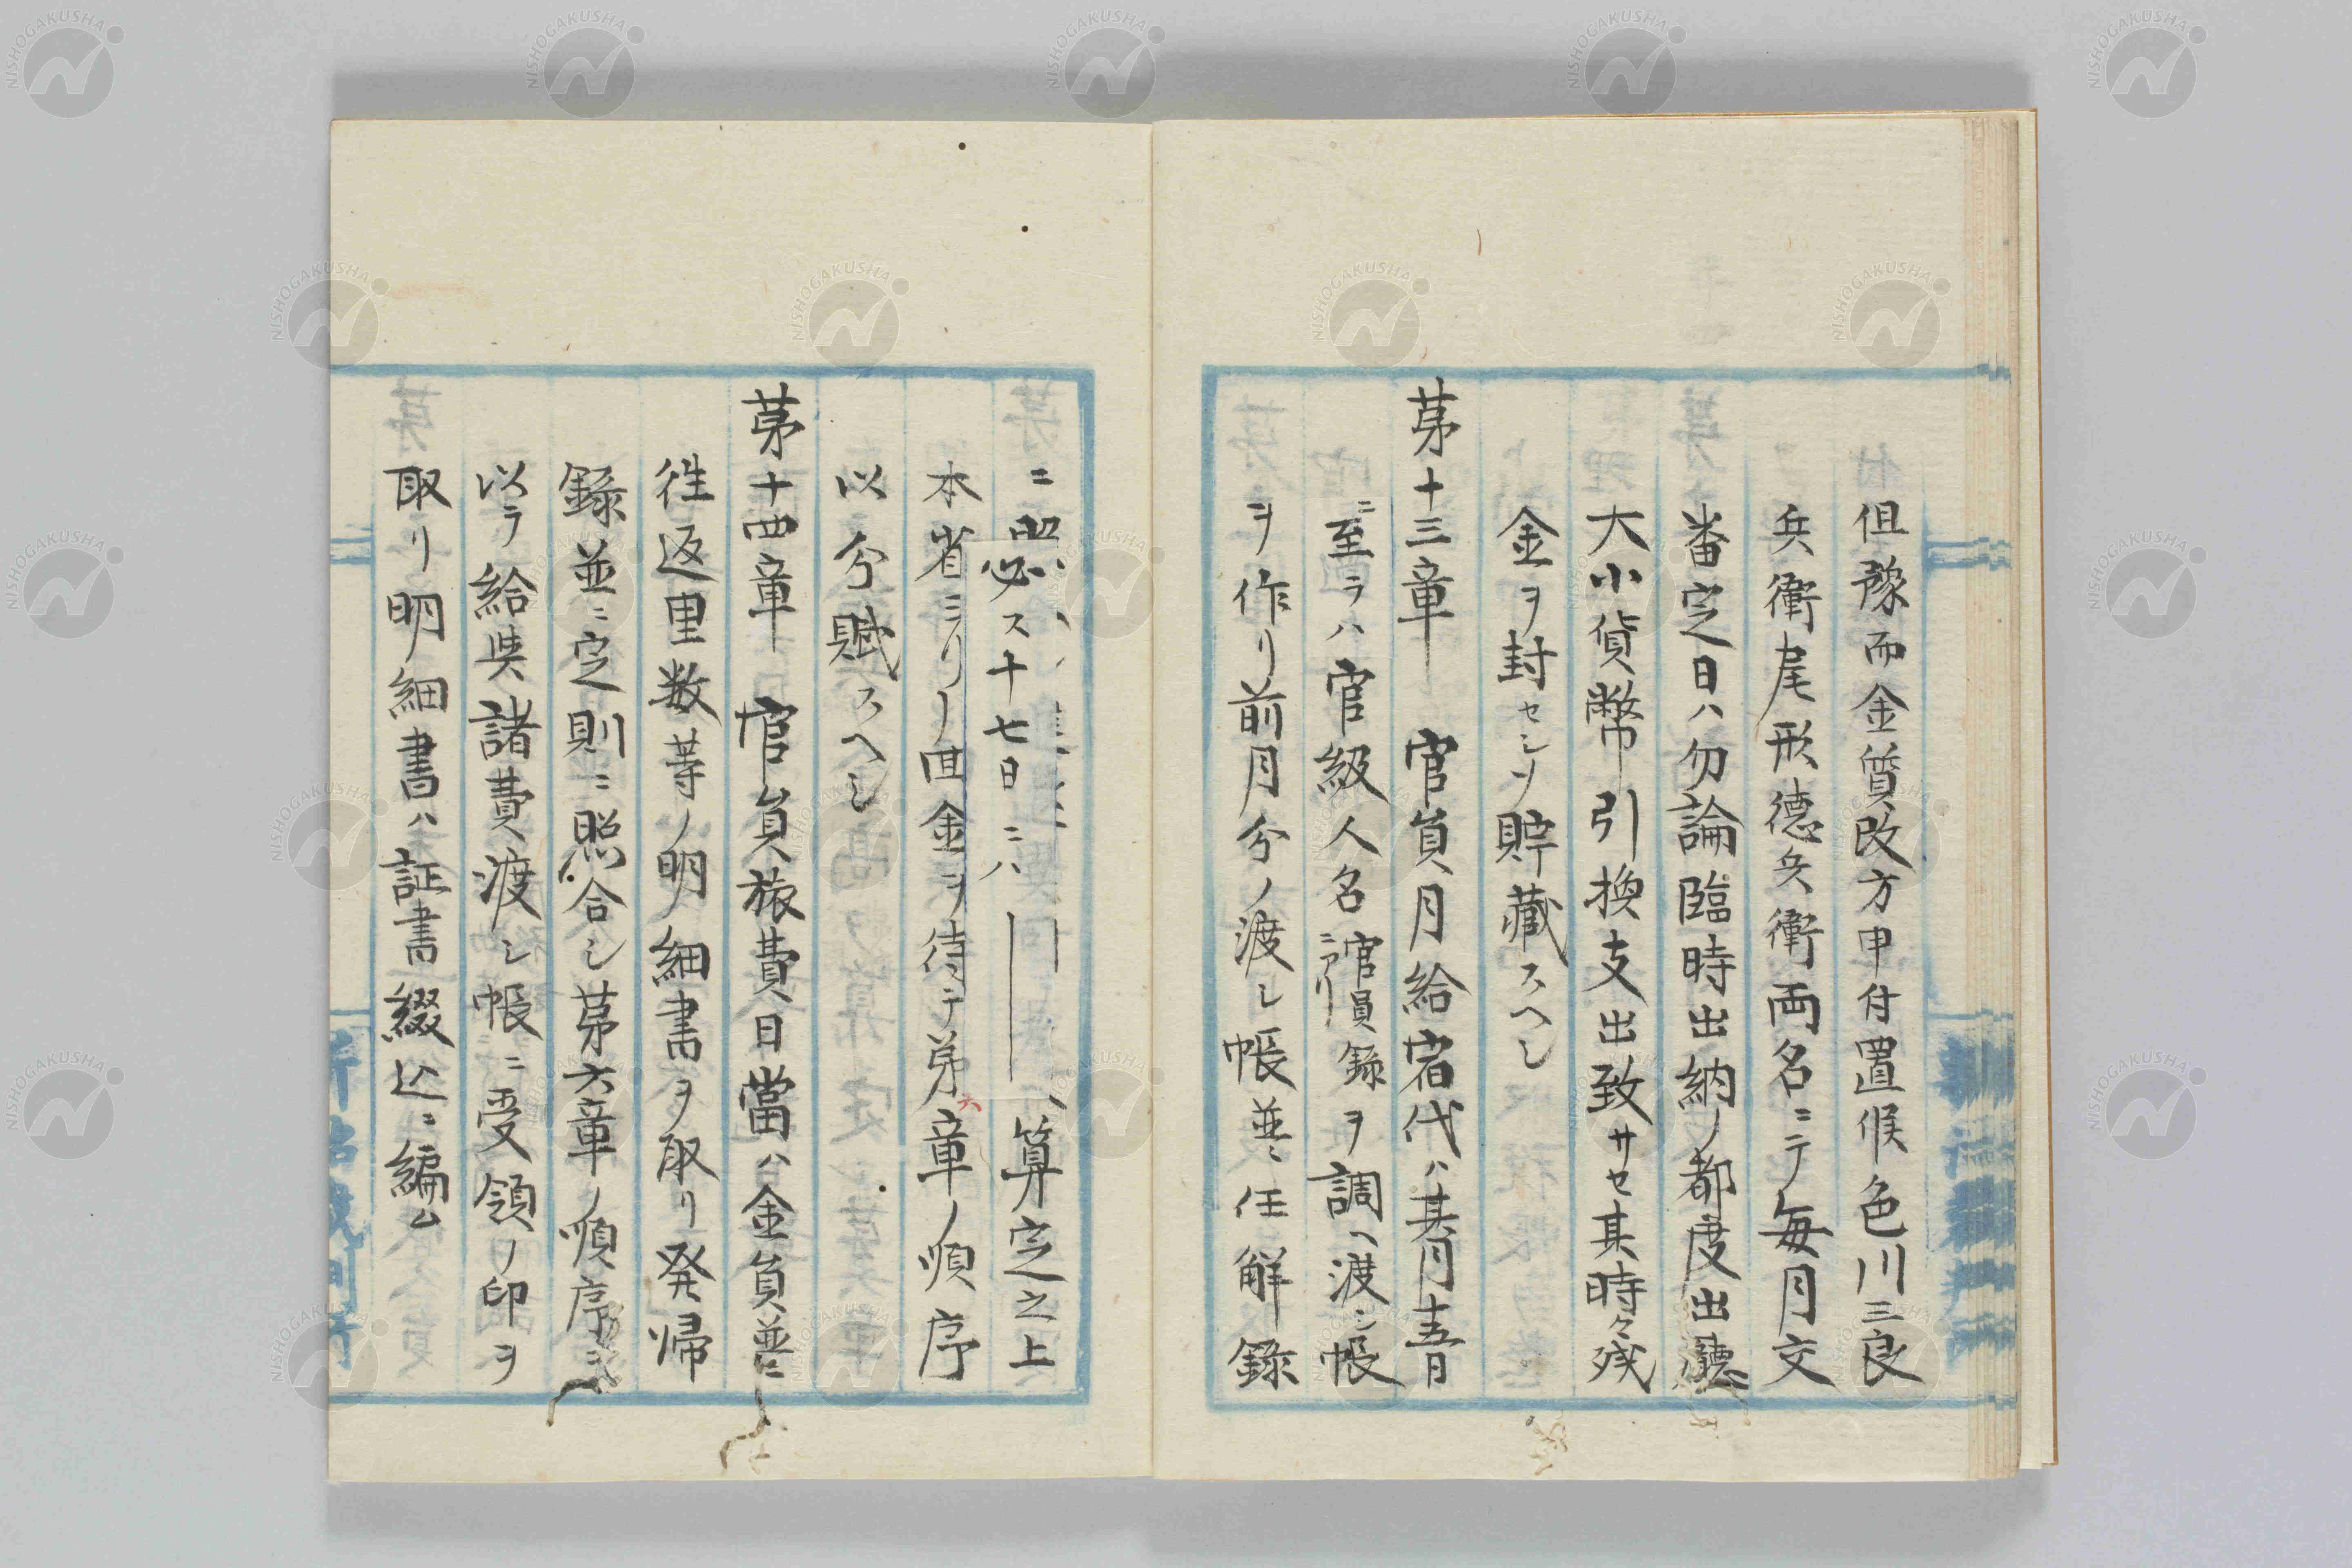 但豫而金質改方申付置候色川三良
兵衛尾形德兵衛両名ニテ毎月交
番定日ハ勿論臨時出納ノ都度出廳
大小貨幣引換支出致サセ其時々残
金ヲ封セシメ貯藏スヘシ
苐十三章 官員月給宿代ハ其月十五日
ニ至ラハ官級人名官員録ニアリヲ調ヘ渡シ帳
ヲ作リ前月分ノ渡シ帳並ニ任解録
ニ照
必ス十七日ニハ
算定之上
本省ヨリノ回金ヲ待テ苐六章ノ順序
以分賦スヘシ
苐十四章 官員旅費日當ハ金員並ニ
往返里数等ノ明細書ヲ取リ発帰
録並ニ定則ニ照合シ苐六章ノ順序ヲ
以テ給與諸費渡シ帳ニ受領ノ印ヲ
取リ明細書ハ証書綴込ニ編ム
NISHOGAKUSHA